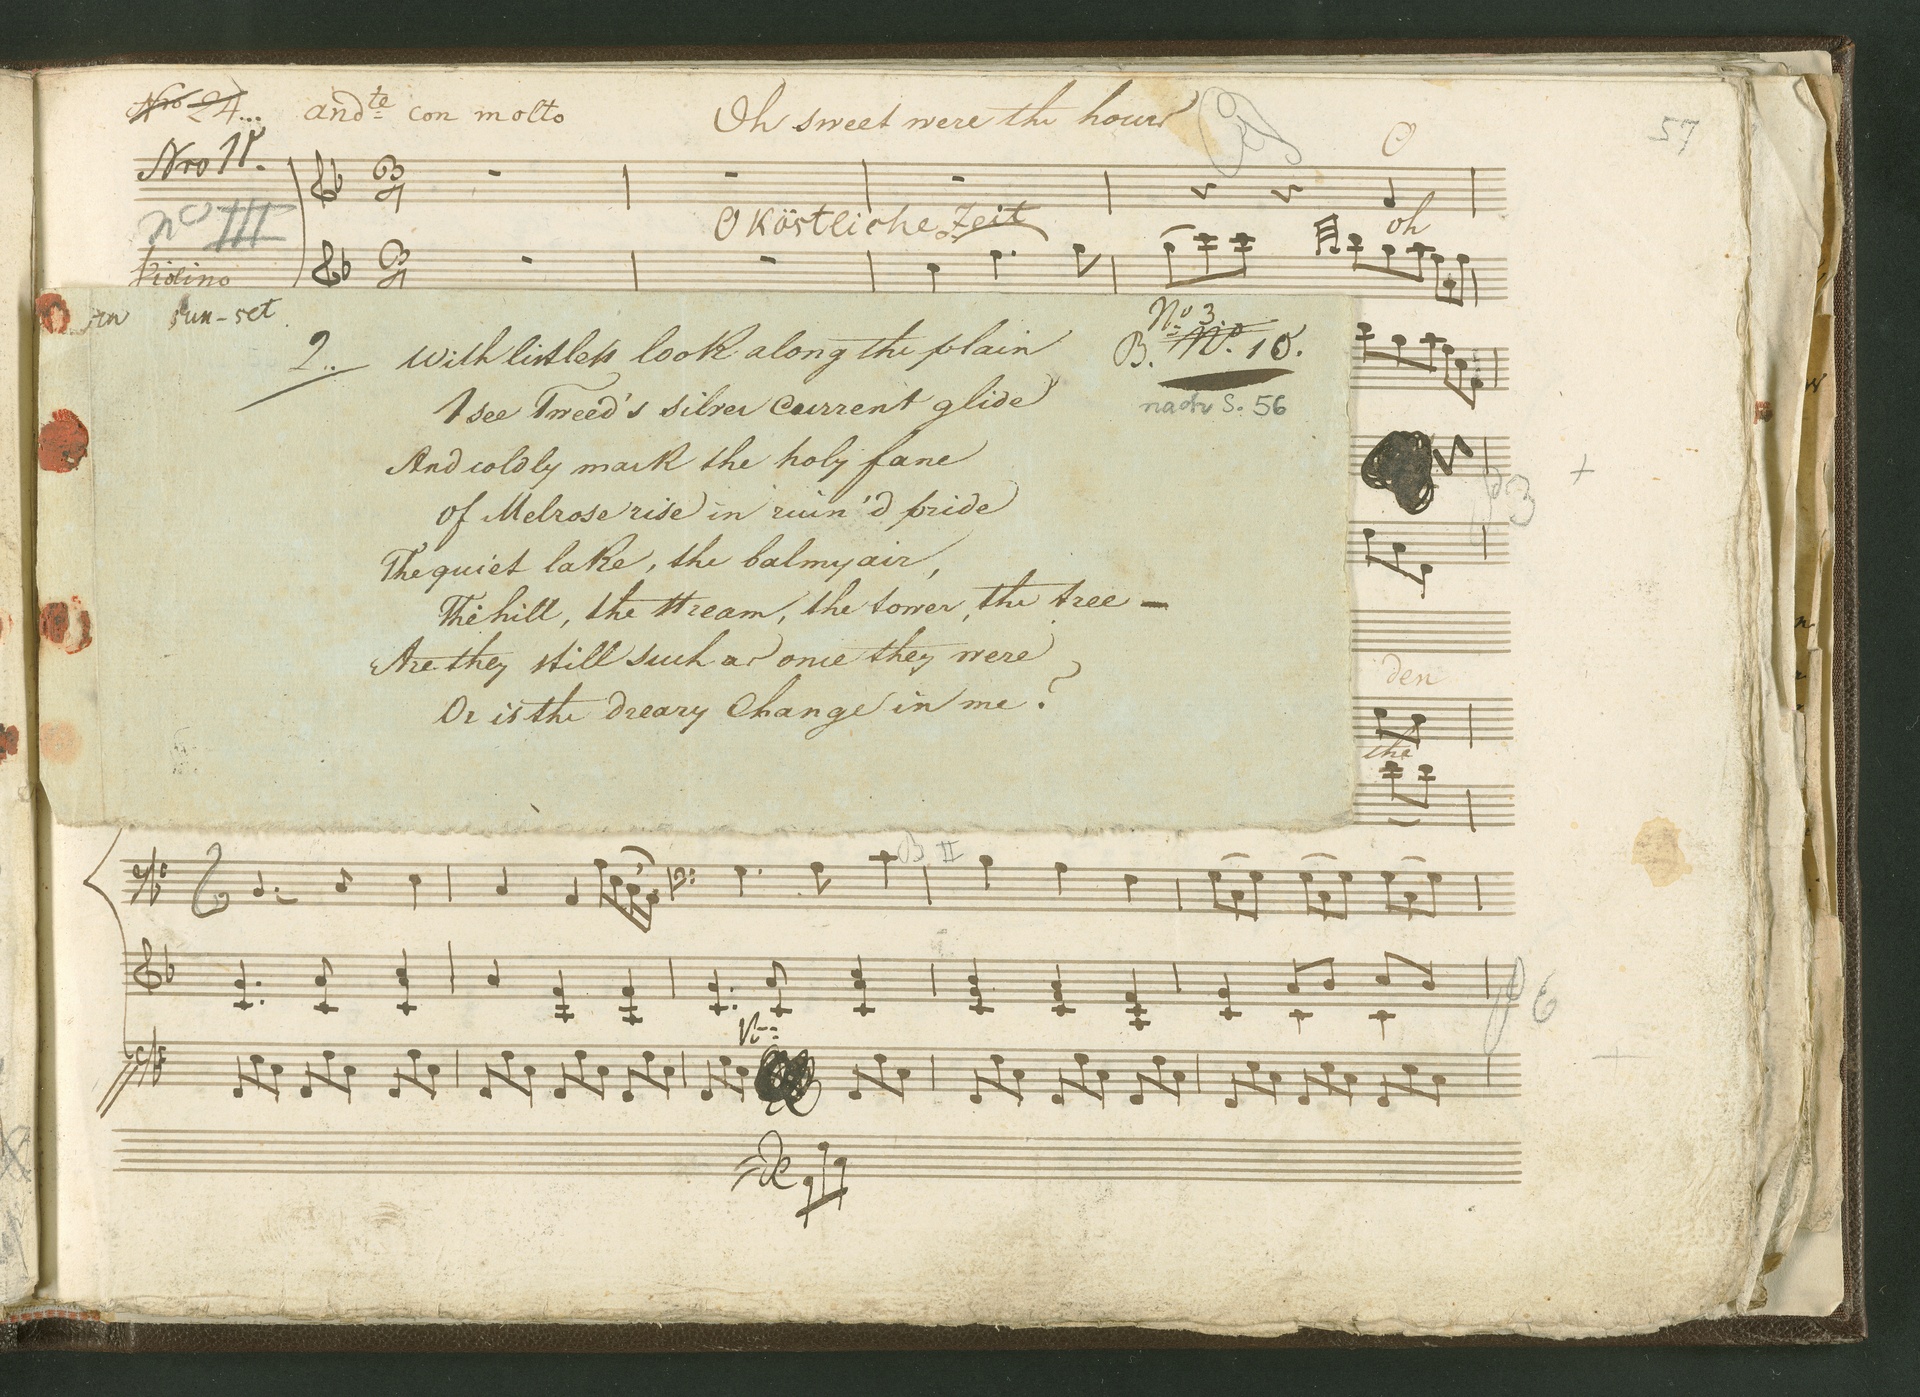 Nro 24... and^te con molto Oh sweet were the hours
57
Nro 11.
O
no III
O Köstliche Zeit
oh
Violino
sun-set
No 3
B. No. 10.
nach S. 56
2.. with listless look along the plain
I see Tweed's silver Current glide
And coldly mark the holy fane
of Melrose rise in ruin'd pride
The quiet lake, the balmy air,
The hill, the stream, the tower, the tree –
Are they still such as once they were
Or is the dreary Change in me?
3
den
the
B II
6
Vi- =
de